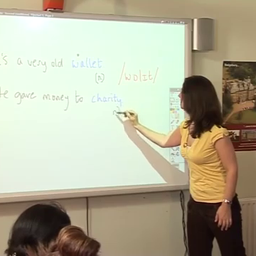 's a very old wallet
(n) /wɒlɪt/
e gave money to charity